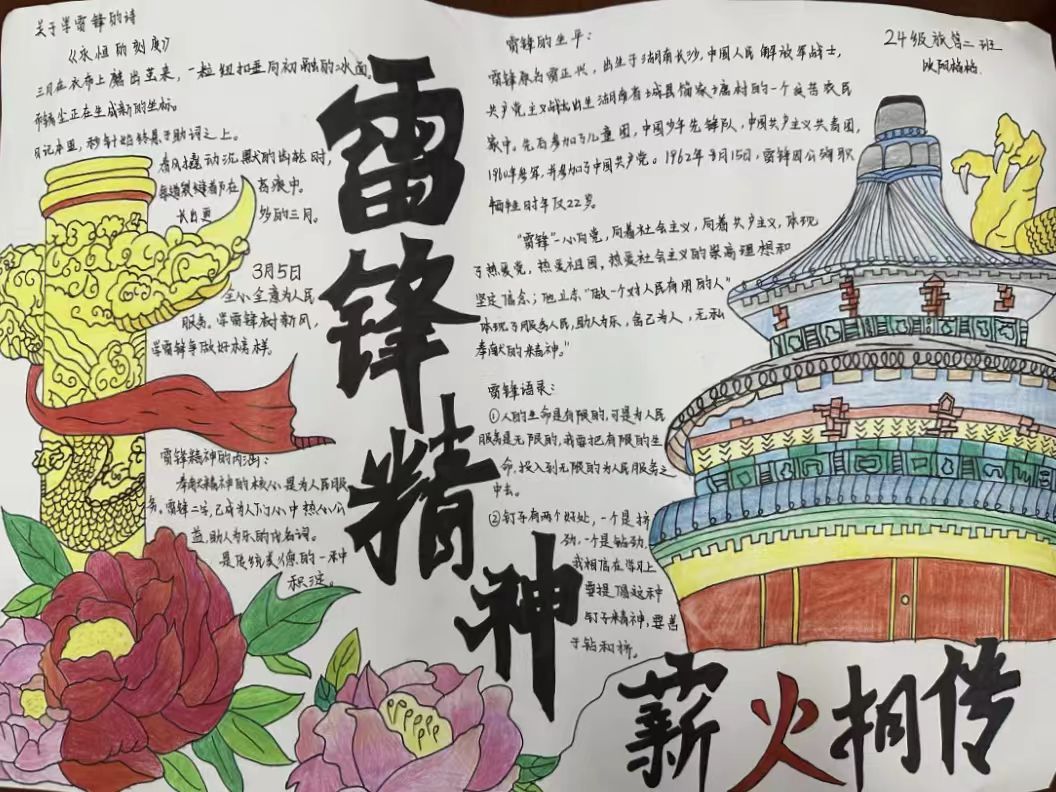 关于学雷锋的诗
《永恒的刻度》
三月在衣布上磨出茧来，一粒纽扣垂向初融的冰面。
正在生成新的坐标。
日记本里，秒针始终悬于助词之上。
春风撬动沉默的齿轮时，
在高痕中。
长出更
妙的三月。
3月5日
全心全意为人民
服务。学雷锋树新风，
学雷锋争做好榜样。
雷锋精神的内涵：
奉献精神的核心是为人民服
务。雷锋二字，已成为人们心中热心公
益，助人为乐的代名词。
是传统美德的一种
积淀。
雷锋精神
雷锋的生平：
雷锋原名雷正兴，出生于湖南长沙，中国人民解放军战士，
共产党主义战士出生湖南省城县简家土唐村的一个贫苦农民
家中。先后参加了儿童团，中国少年先锋队，中国共产主义共青团，
1960年参军，并参加了中国共产党。1962年8月15日，雷锋因公殉职
牺牲时年仅22岁。
"雷锋"一心向党，向着社会主义，向着共产主义，体现
了热爱党，热爱祖国，热爱社会主义的崇高理想和
坚定信念；他立志"做一个对人民有用的人"
体现了服务人民，助人为乐，舍己为人，无私
奉献的精神。"
雷锋语录：
①人的生命是有限的，可是为人民
服务是无限的，我要把有限的生
命，投入到无限的为人民服务之
中去。
②钉子有两个好处，一个是挤
劲，一个是钻劲，
我相信在学习上
要提倡这种
钉子精神，要善
于钻和挤。
24级旅管二班
欧阳格格
薪火相传